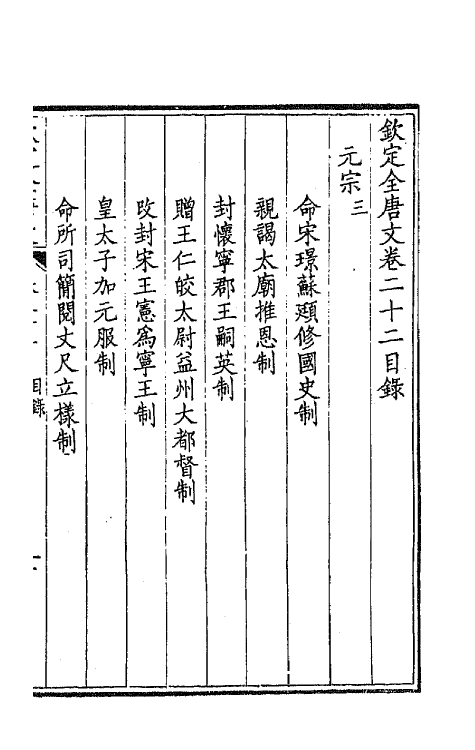 欽定全唐文卷二十二目錄
元宗三
命宋璟蘇頲修國史制
親謁太廟推恩制
封懷寧郡王嗣英制
贈王仁皎太尉益州大都督制
改封宋王憲爲寧王制
皇太子加元服制
命所司簡閱丈尺立樣制
目錄